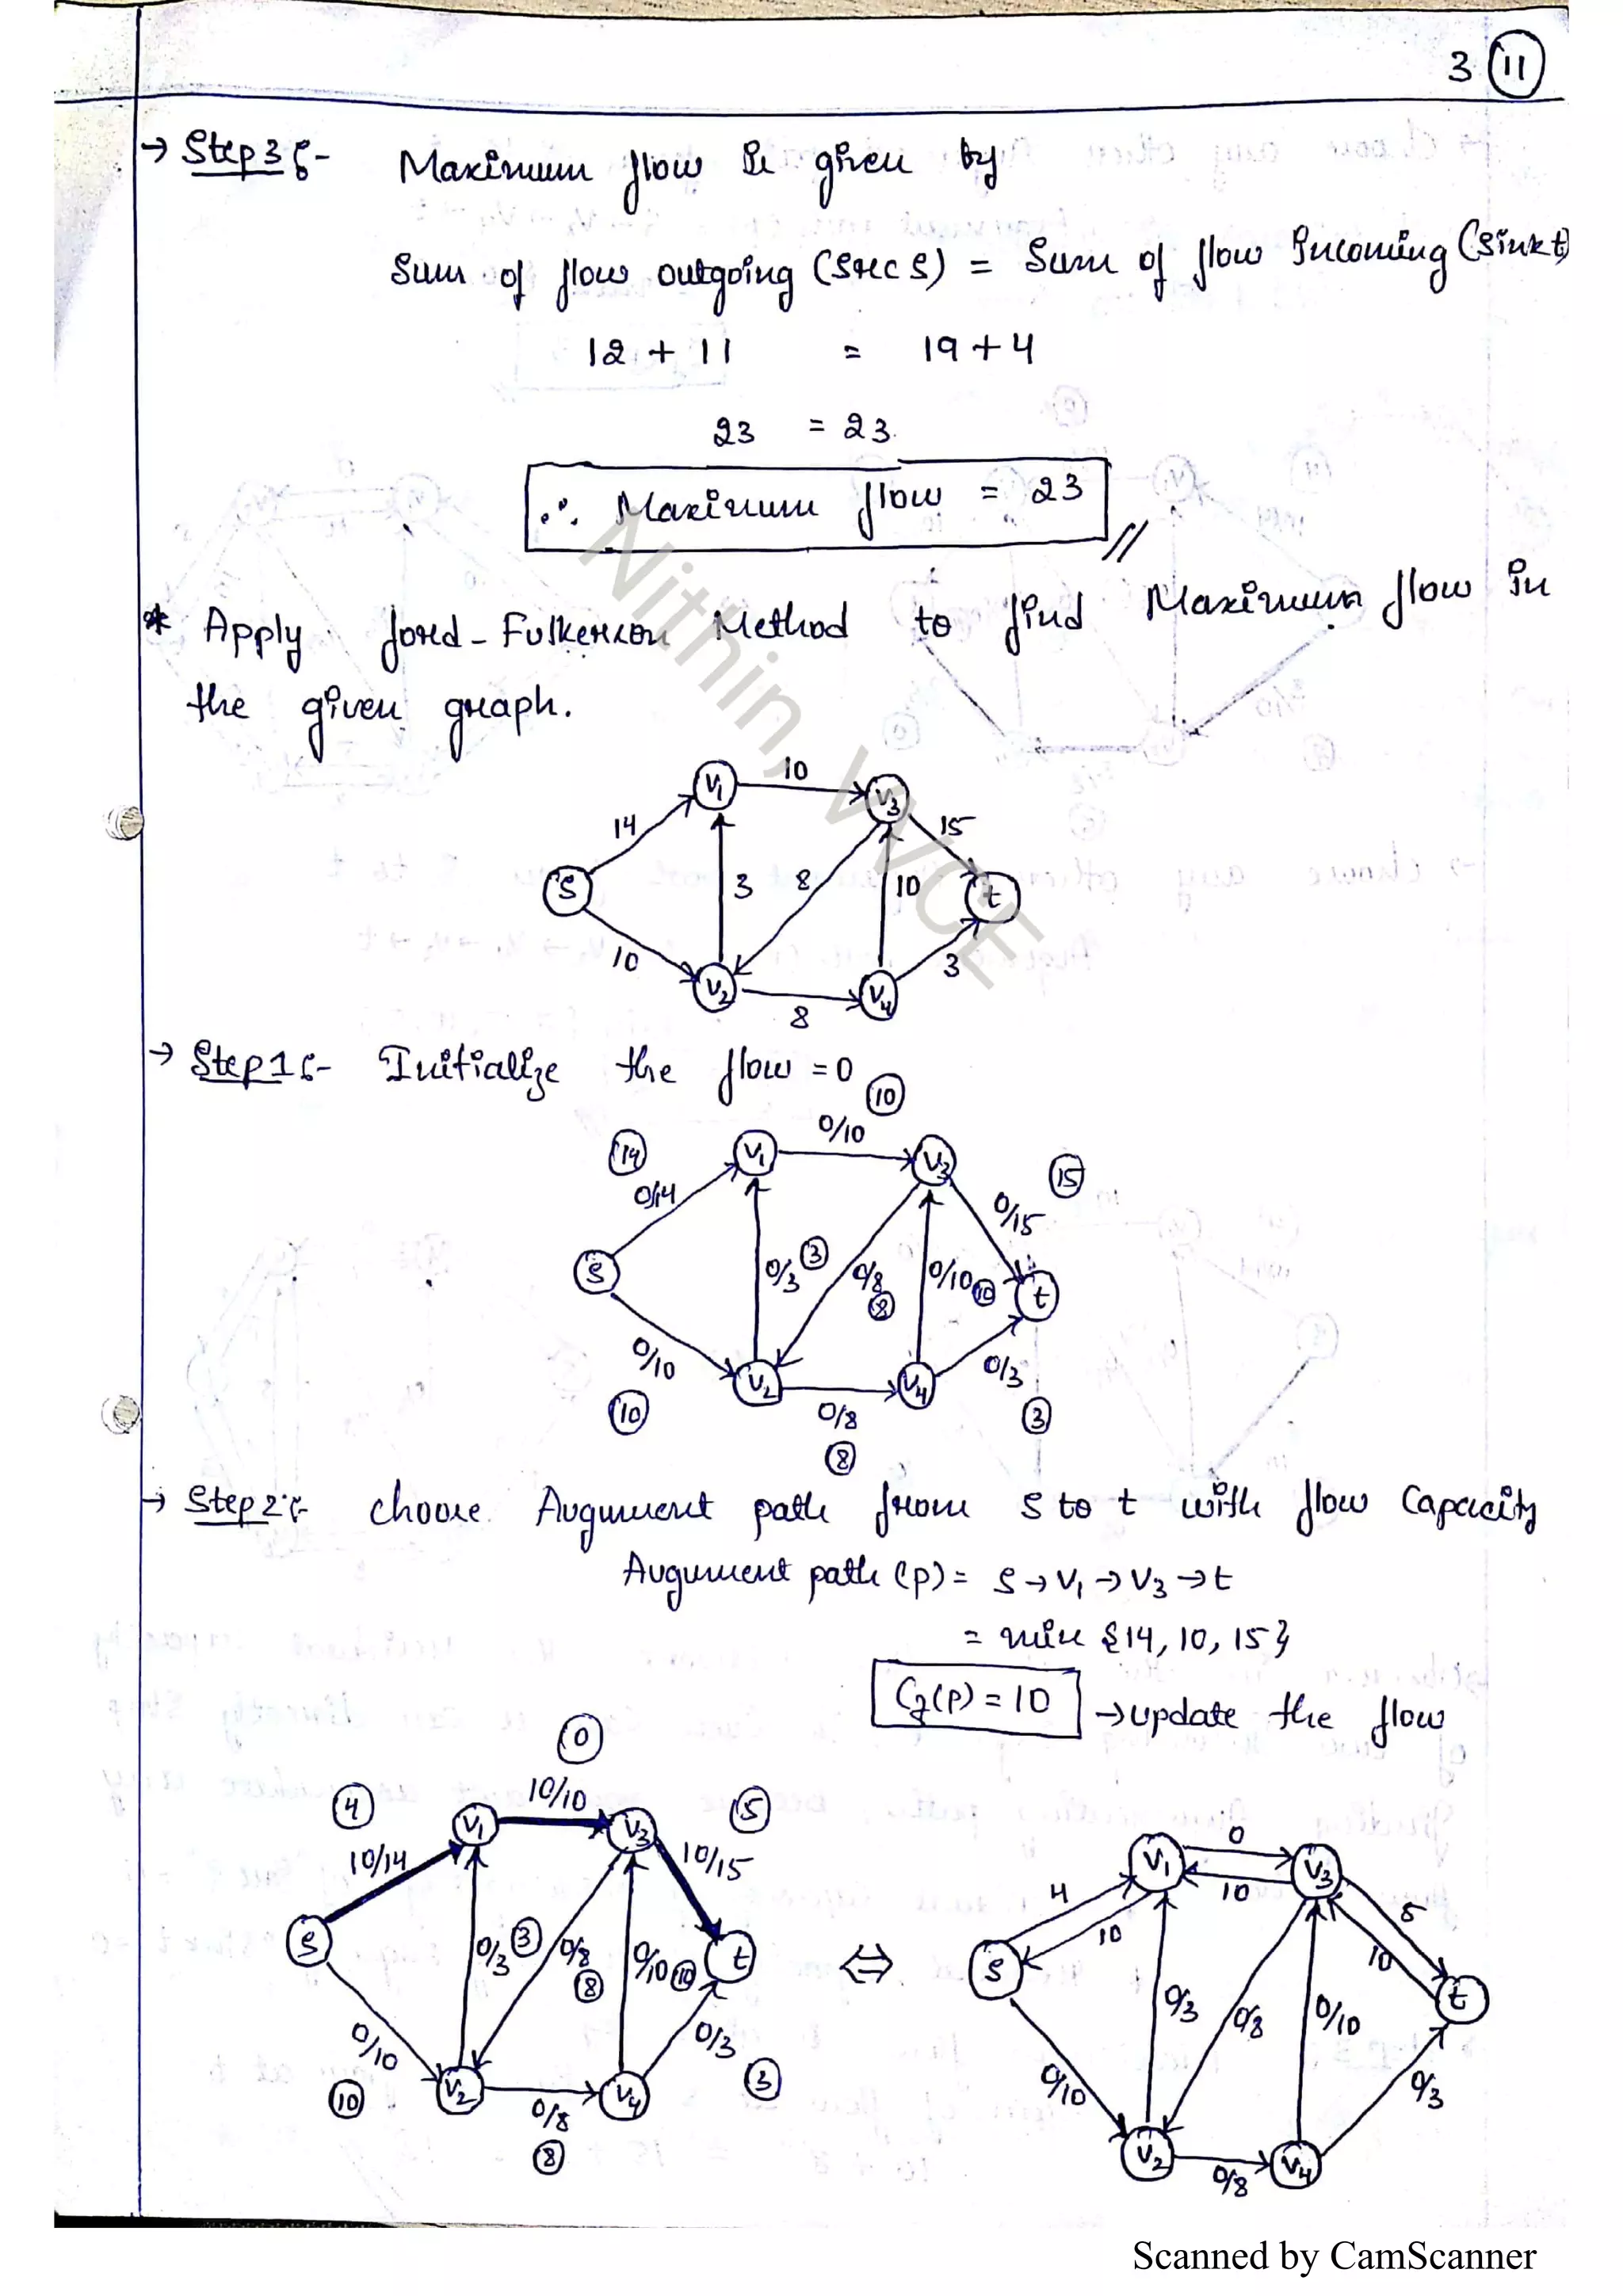 3 11
→ Step 3 :- Maximum flow is given by
Sum of flow outgoing (src s) = Sum of flow Incoming (sink t)
12 + 11 = 19 + 4
23 = 23
∴ Maximum flow = 23 //
* Apply ford-Fulkerson Method to find Maximum flow in
the given graph.
V1 10 V3
14 15
S 3 8 10 t
10 3
V2 8 V4
→ Step 1 :- Initialize the flow = 0
10
0/10
14 V1 V3 15
0/14 0/15
S 0/3 3 0/8 8 0/10 10 t
0/10 0/3
V2 V4
10 0/8 3
8
→ Step 2 :- choose Augument path from S to t with flow Capacity
Augument path (P) = S → V1 → V3 → t
= min {14, 10, 15}
Cf(P) = 10 → update the flow
0
10/10
4 V1 V3 5
10/14 10/15
S 0/3 3 0/8 8 0/10 10 t
0/10 0/3
10 V2 V4 3
0/8
8
⇔
0
V1 V3
10
4 10 5 10
S 0/3 0/8 0/10 t
0/10 0/3
V2 0/8 V4
Nithin, VVCE
Scanned by CamScanner